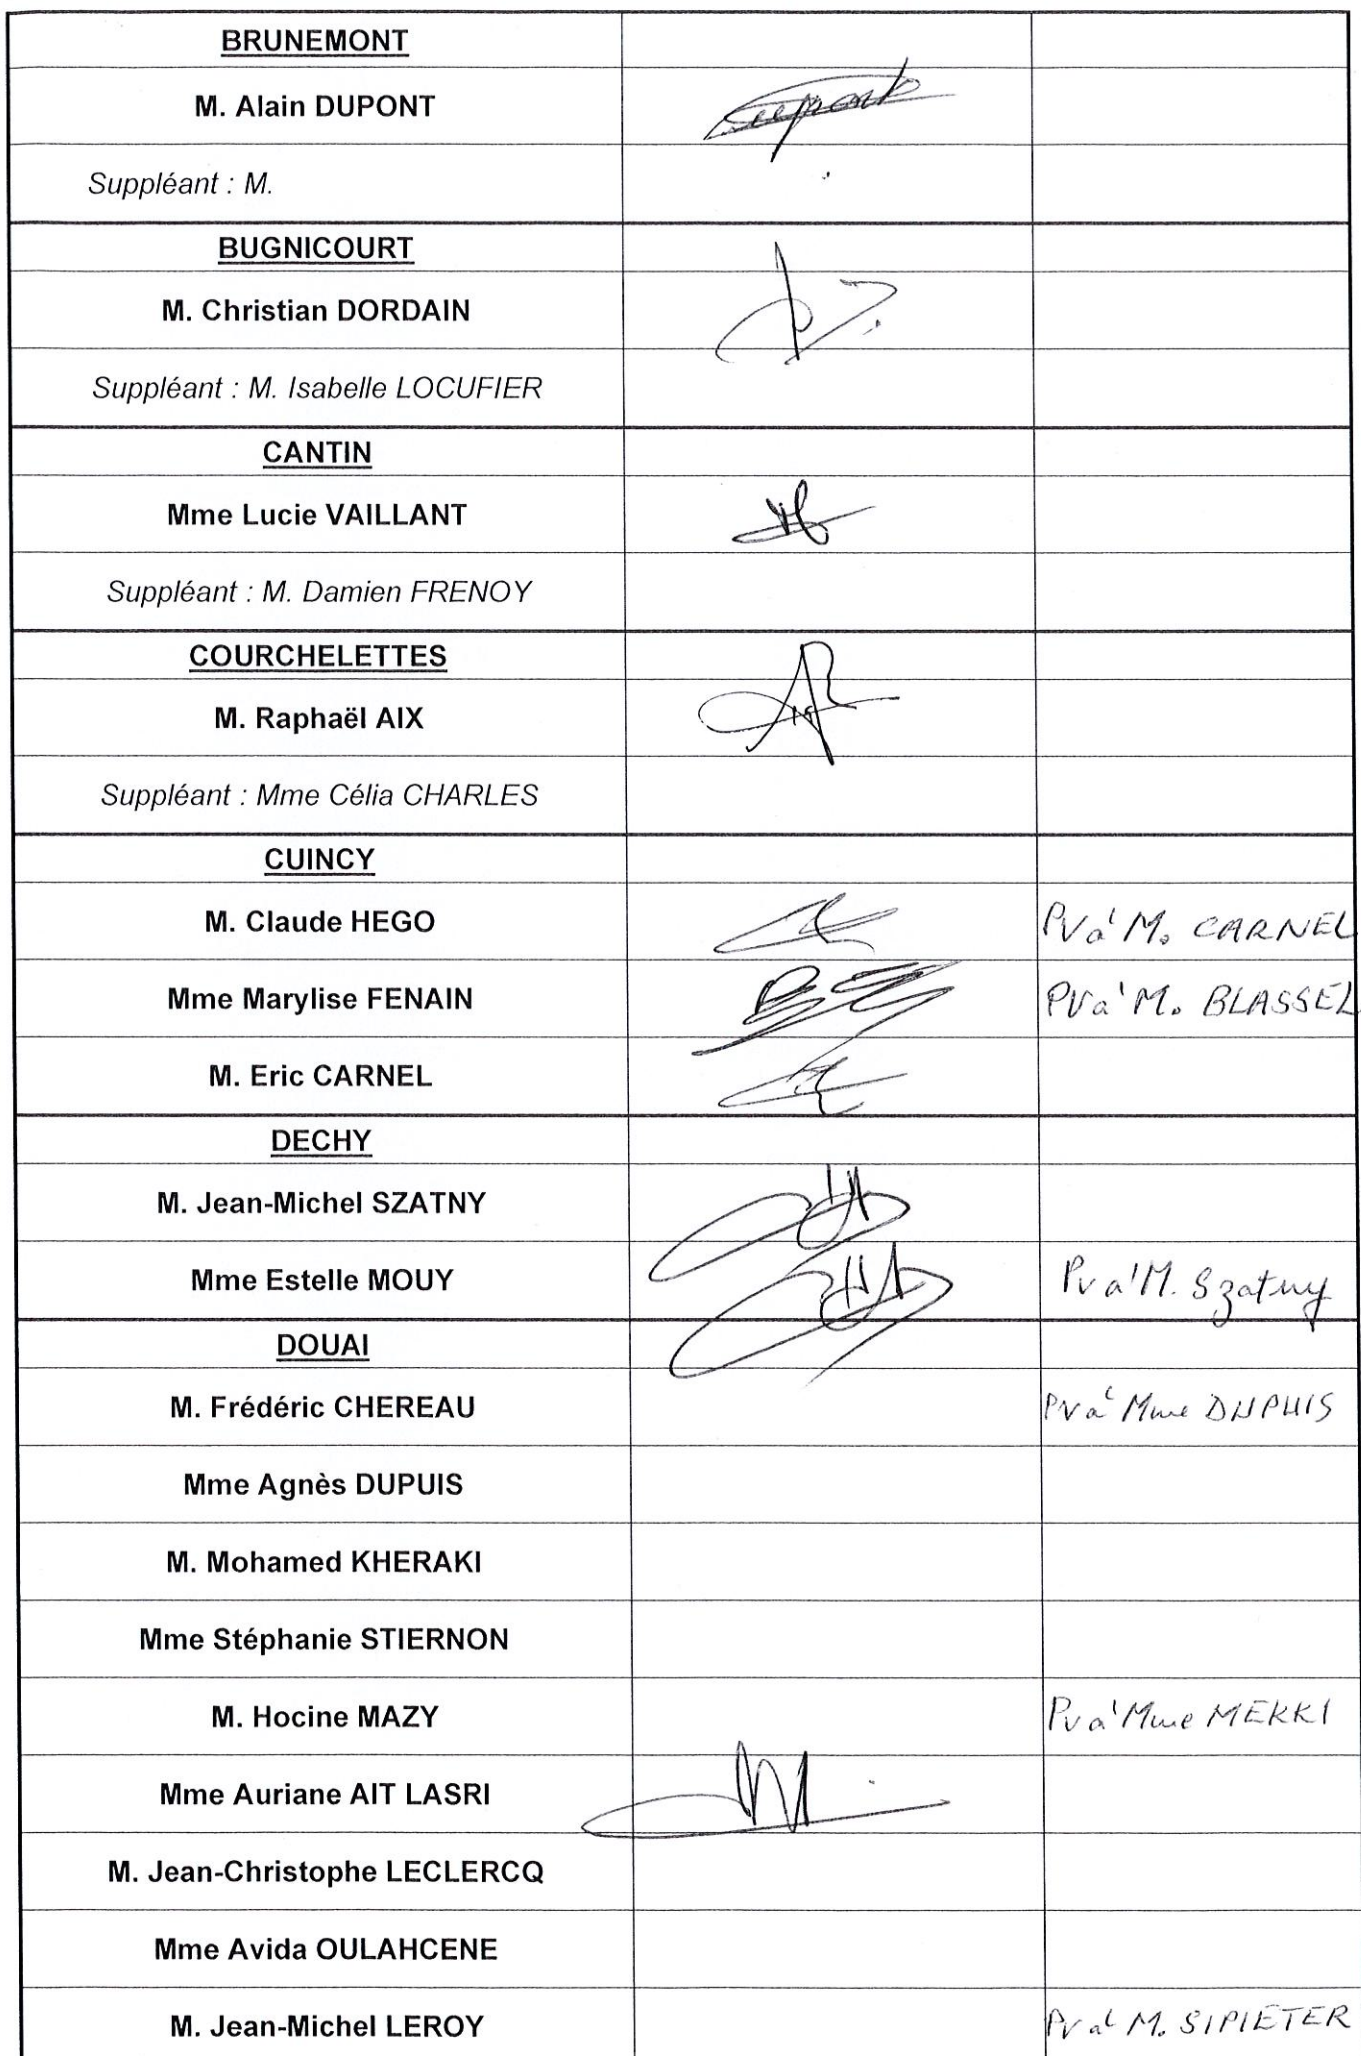 BRUNEMONT
M. Alain DUPONT
Dupont
Suppléant : M.
BUGNICOURT
M. Christian DORDAIN
Suppléant : M. Isabelle LOCUFIER
CANTIN
Mme Lucie VAILLANT
Suppléant : M. Damien FRENOY
COURCHELETTES
M. Raphaël AIX
Suppléant : Mme Célia CHARLES
CUINCY
M. Claude HEGO Pv à M. CARNEL
Mme Marylise FENAIN Pv à M. BLASSEL
M. Eric CARNEL
DECHY
M. Jean-Michel SZATNY
Mme Estelle MOUY Pv à M. Szatny
DOUAI
M. Frédéric CHEREAU Pv à Mme DUPUIS
Mme Agnès DUPUIS
M. Mohamed KHERAKI
Mme Stéphanie STIERNON
M. Hocine MAZY Pv à Mme MEKKI
Mme Auriane AIT LASRI
M. Jean-Christophe LECLERCQ
Mme Avida OULAHCENE
M. Jean-Michel LEROY Pv à M. SIPIETER